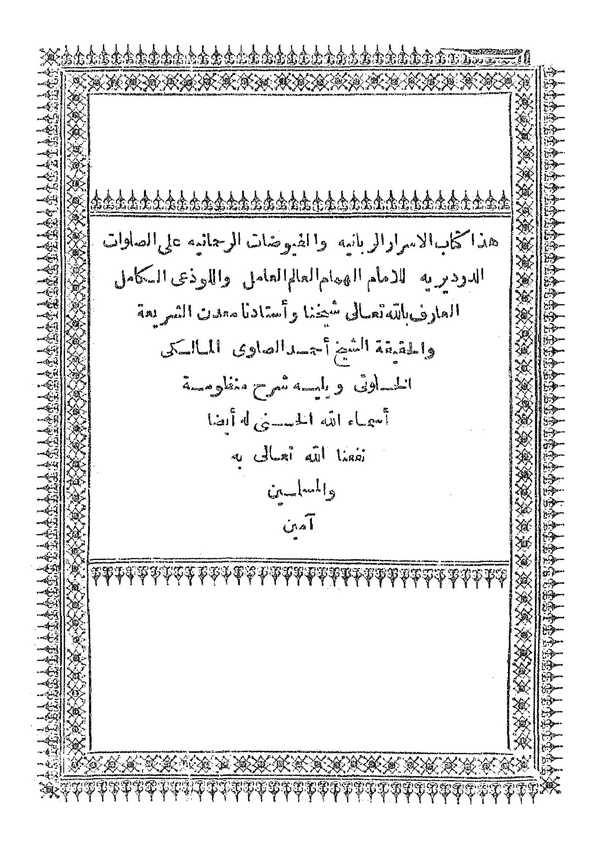 هذا كتاب الاسرار الربانيه والفيوضات الرحمانيه على الصلوات
الدرديريه للامام الهمام العالم العامل واللوذعى الكامل
العارف بالله تعالى شيخنا وأستاذنا معدن الشريعة
والحقيقة الشيخ أحمد الصاوى المالكى
الخلوتى ويليه شرح منظومة
أسماء الله الحسنى له أيضا
نفعنا الله تعالى به
والمسلمين
آمين